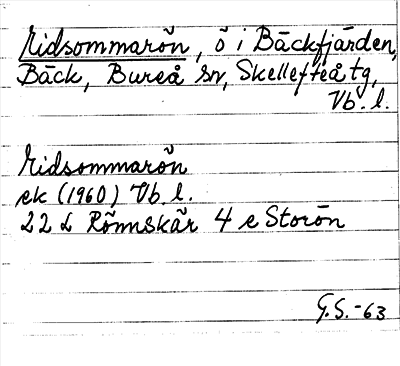 Midsommarön, ö i Bäckfjärden,
Bäck, Bureå sn, Skellefteå tg,
Vb. l.
Midsommarön
ek (1960) Vb. l.
22 L Rönnskär 4 e Storön
G.S. -63